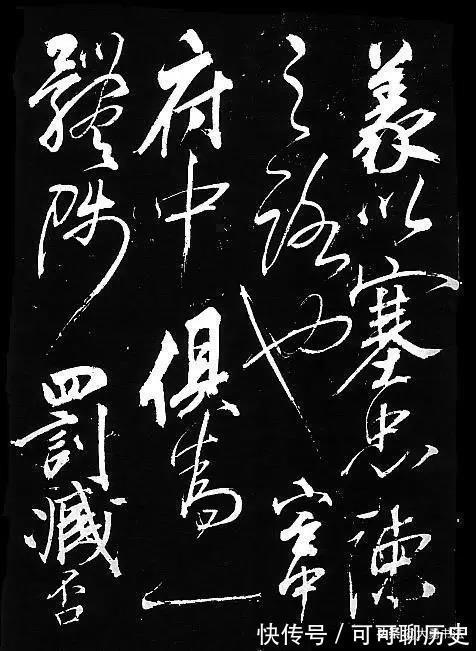 義以塞忠諫
之路也宮中
府中俱為一
體陟罰臧否
快传号 / 可可聊历史